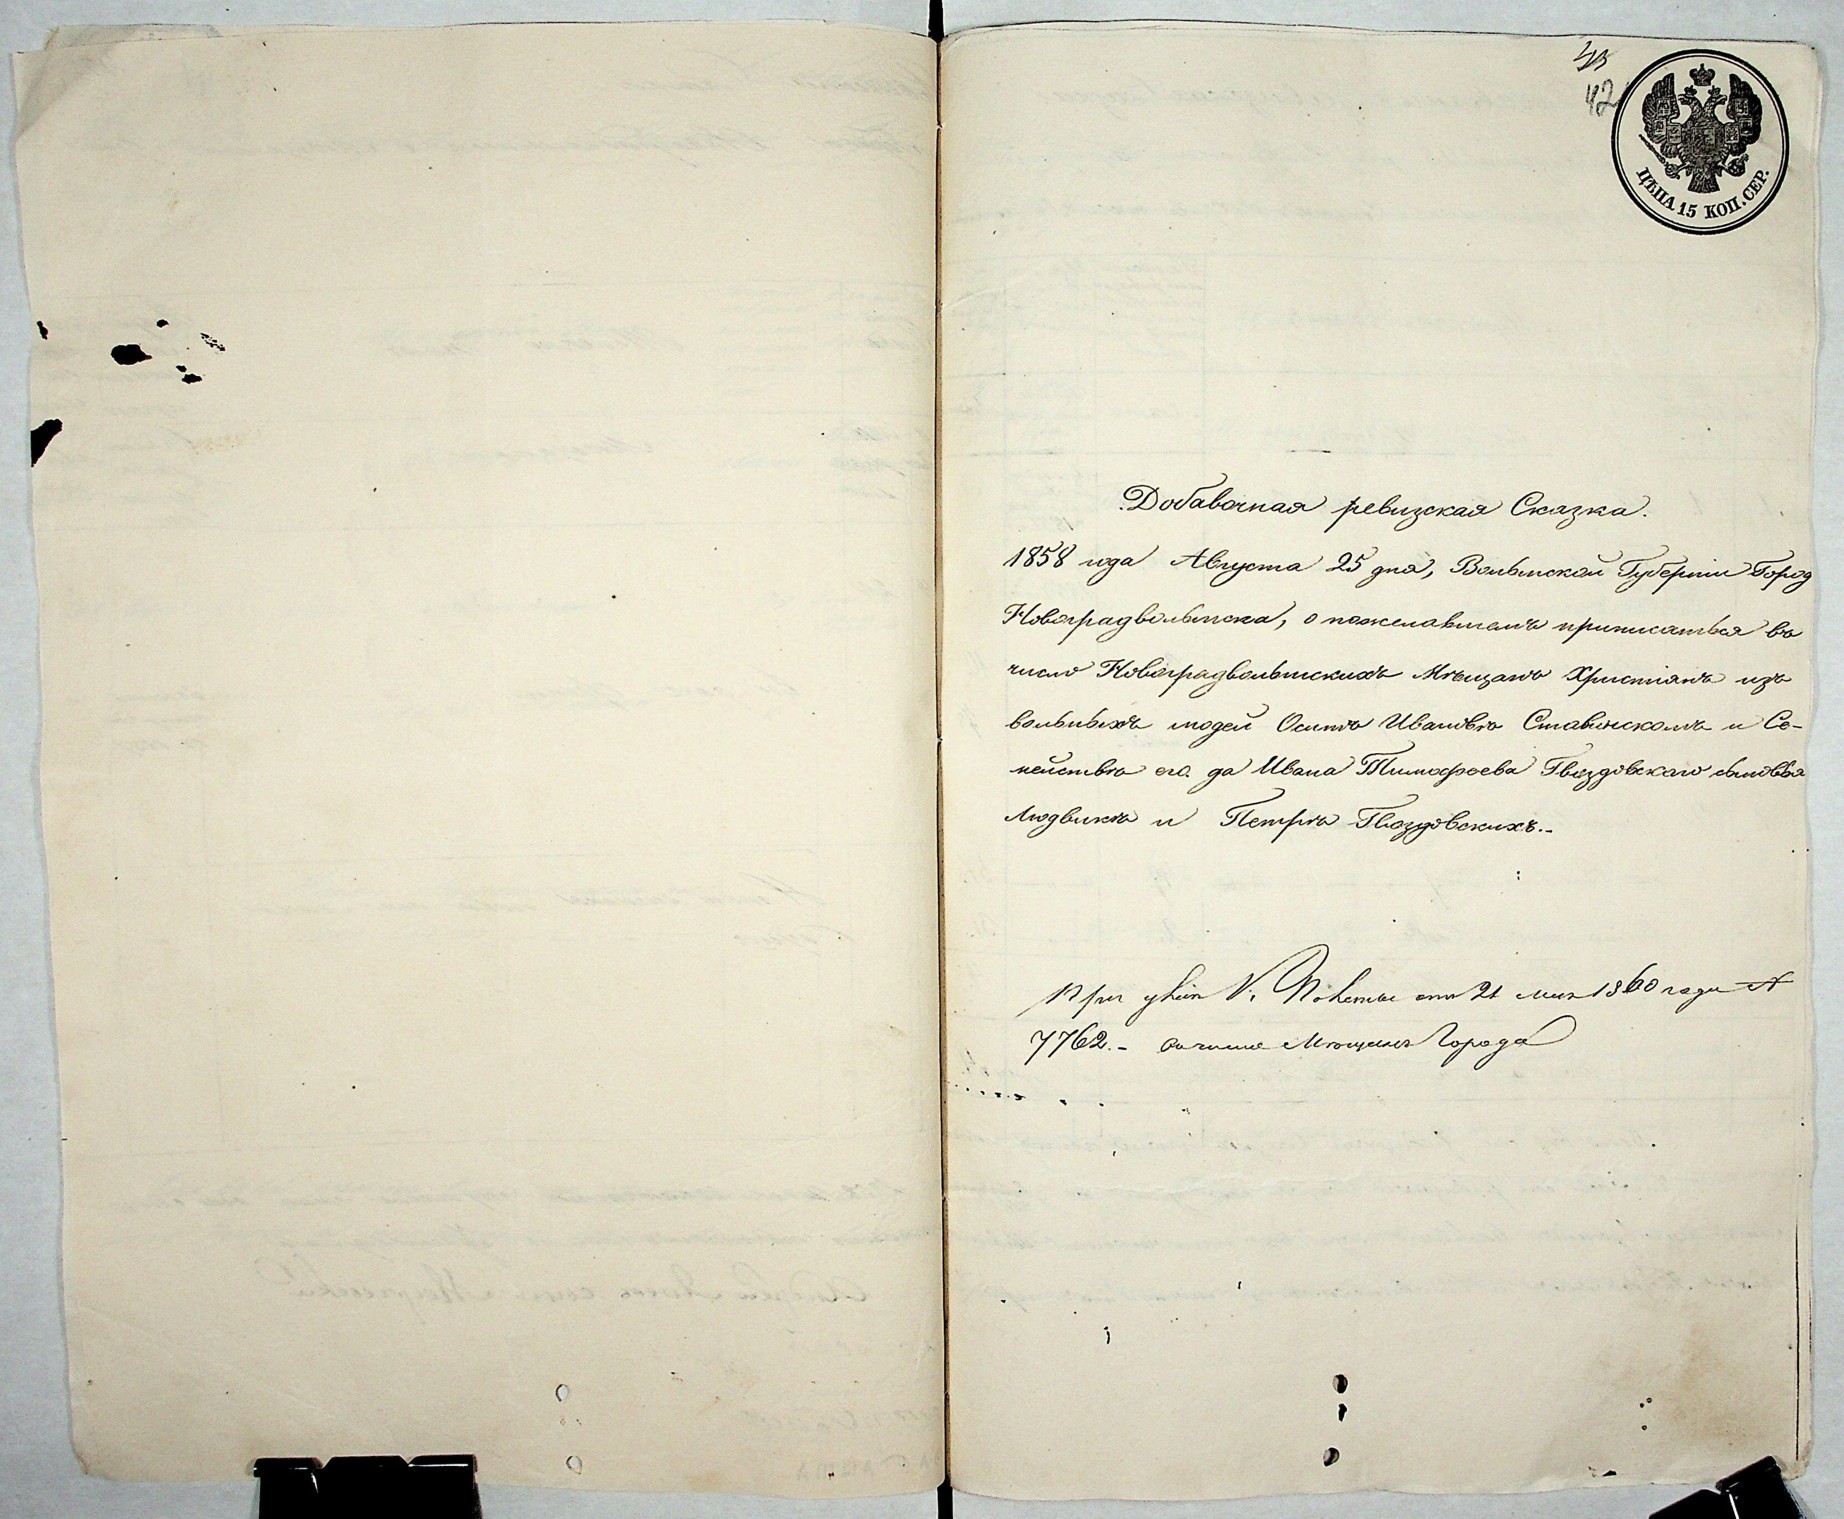 42
ЦѢНА 15 КОП. СЕР.
Добавочная ревизская Сказка.
1858 года Августа 25 дня, Волынской Губерніи Город
Новоградволынска, о пожелавшемъ приписаться въ
число Новоградволынскихъ Мѣщанъ Христіянъ изъ
вольныхъ людей Осипѣ Ивановѣ Ставинскомъ и Се-
мействѣ его да Ивана Тимофеева Гвоздовскаго сыновья
Людвикѣ и Петрѣ Гвоздовскихъ.-
При 21 мая 1860 года №
7762.- Мѣщанъ Города